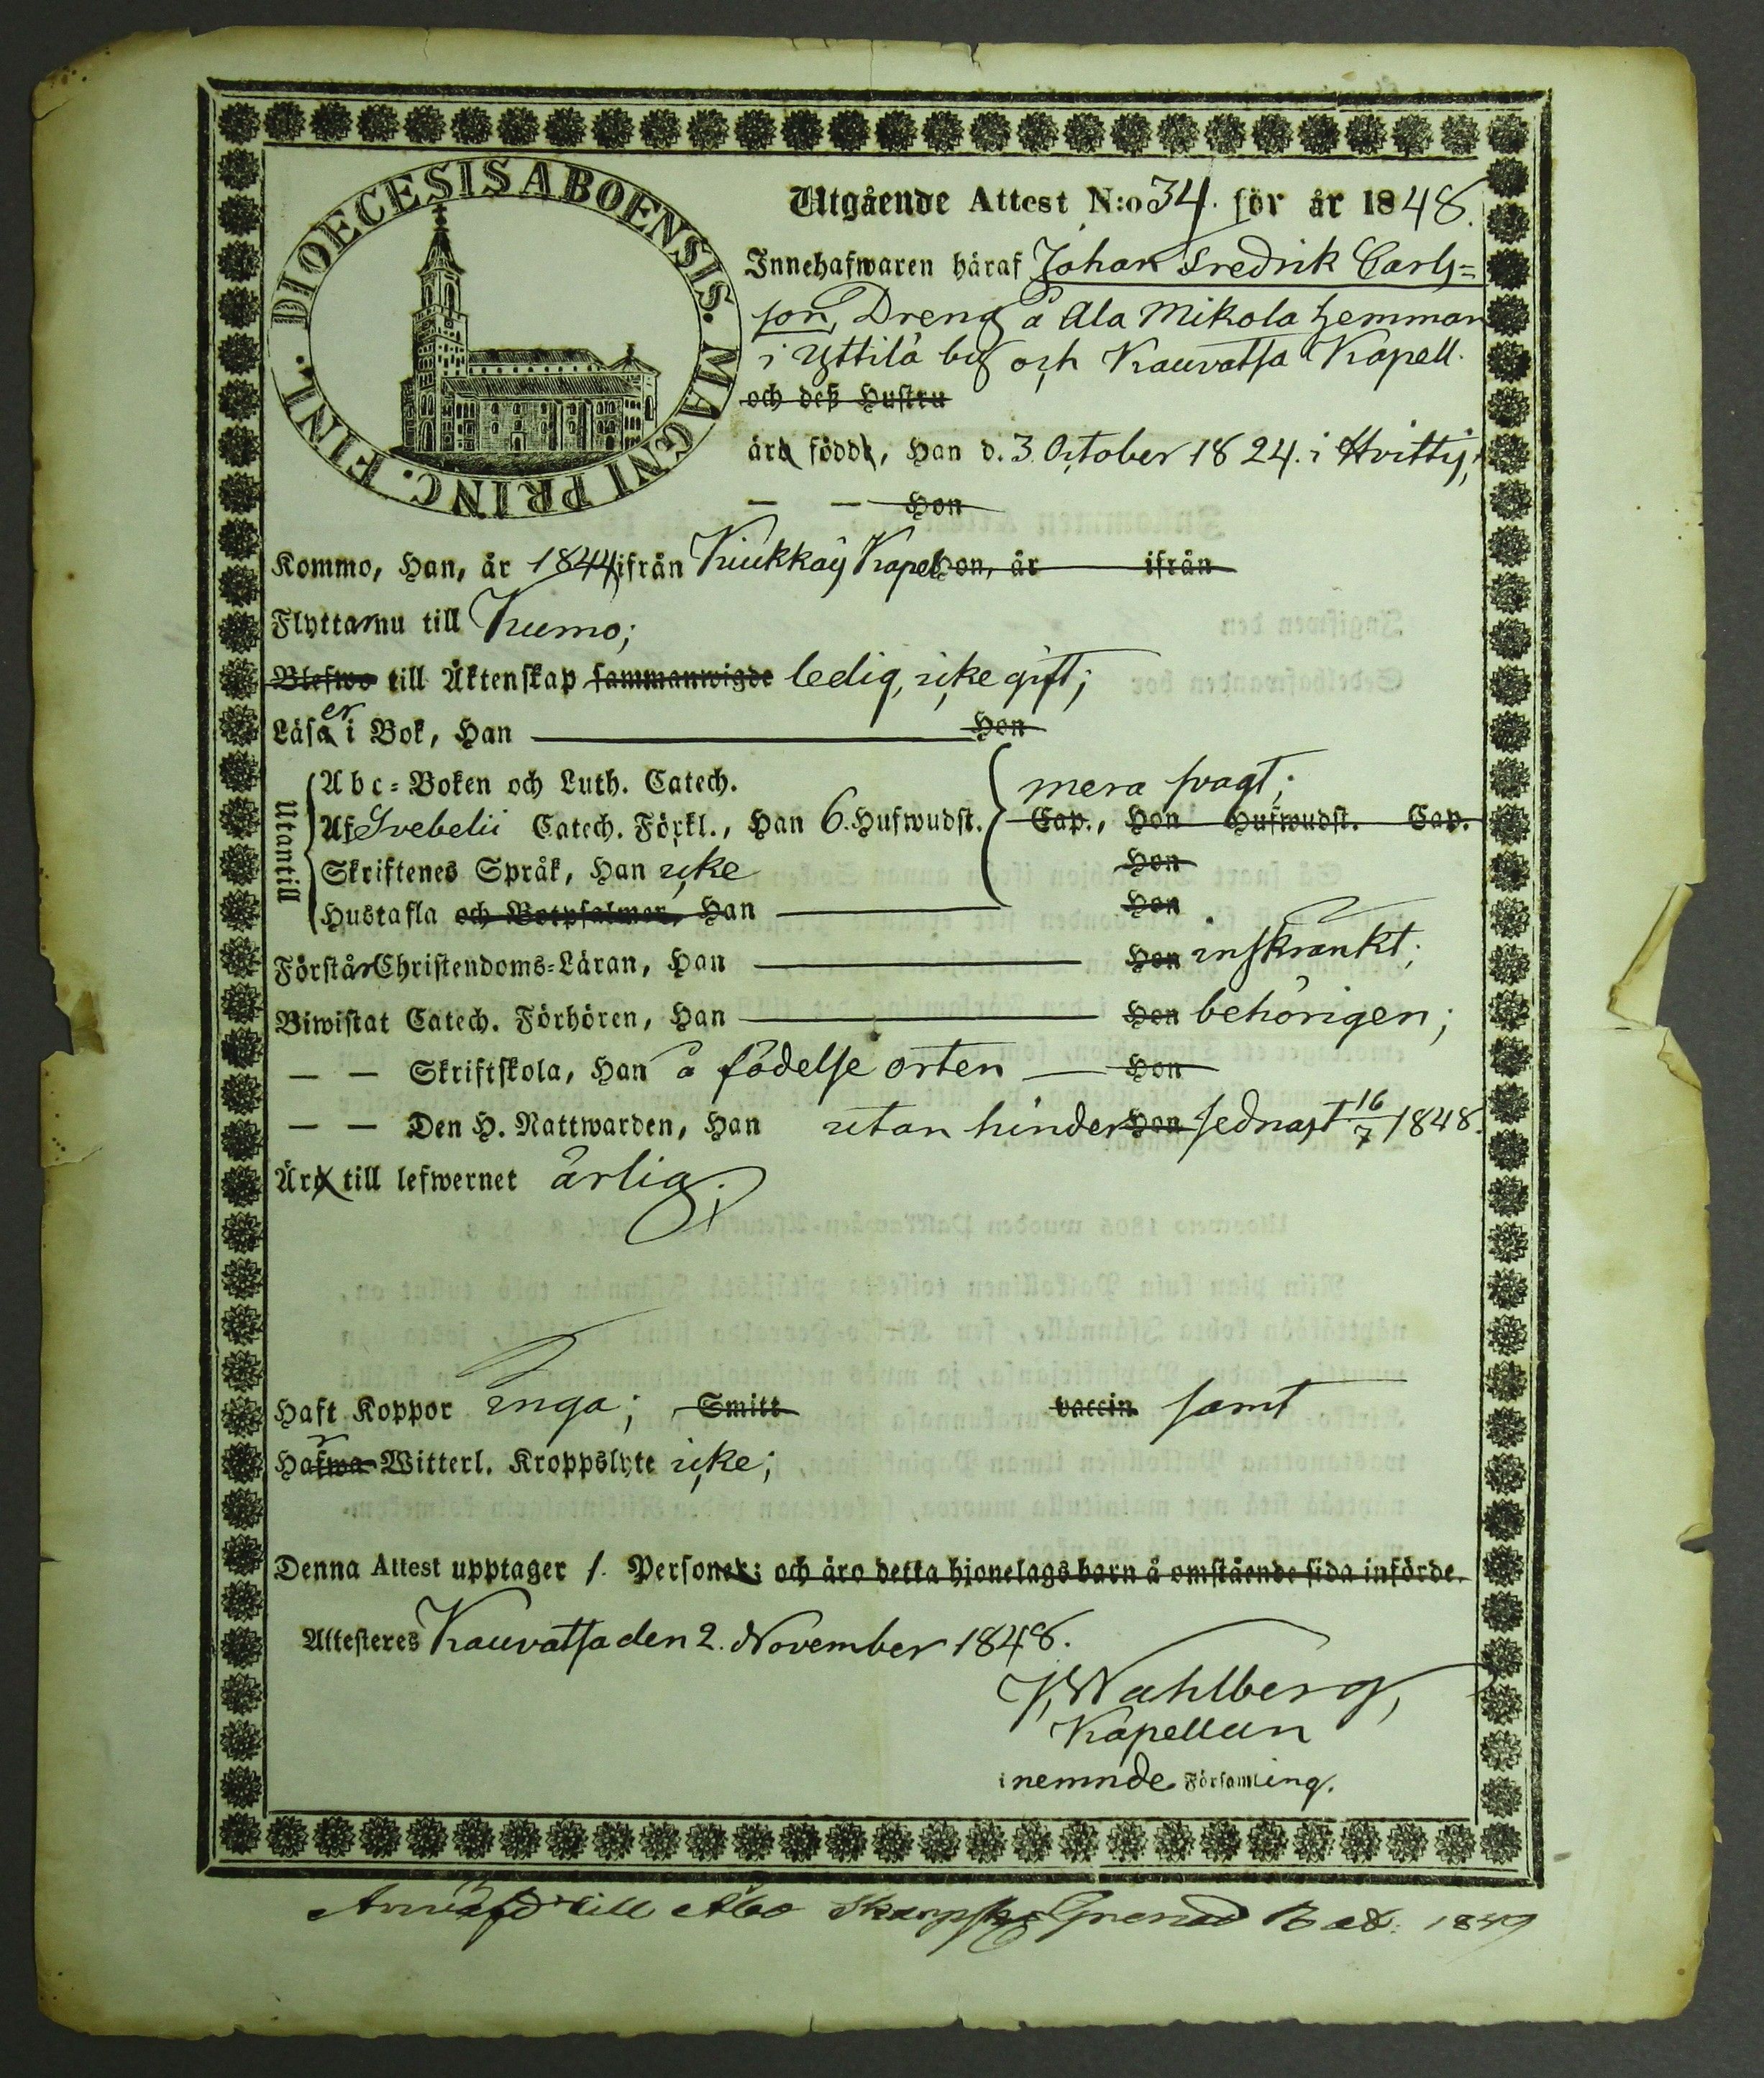 DIOECESIS ABOENSIS. MAGNI PRINC. FINL.
Utgående Attest N:o 34. för år 1848.
Innehafwaren häraf Johan Fredrik Carls=
son, Dreng å Ala Mikola hemman
i Yttilä by och Kauvatsa Kapell.
och deß Hustru
äro födde, Han d. 3. October 1824. i Hvittis,
— — Hon
Kommo, Han, år 1844 ifrån Kiukkais Kapel Hon, år ifrån
Flyttar nu till Kumo;
Blefwo till Äktenskap sammanwigde ledig, icke gift;
er
Läsa i Bok, Han Hon
Utantill
Abc=Boken och Luth. Catech. mera svagt;
Af Svebelii Catech. Förkl., Han 6. Hufwudst. Cap., Hon Hufwudst. Cap.
Skriftenes Språk, Han icke Hon
Hustafla och Botpsalmer, Han Hon
Förstår Christendoms=Läran, Han Hon inskränkt;
Biwistat Catech. Förhören, Han Hon behörigen;
— — Skriftskola, Han å födelse orten — Hon
— — Den H. Nattwarden, Han utan hinder Hon sednast 16/7 1848.
Äro till lefwernet ärlig.
Haft Koppor inga; Smitt vaccin. samt
r
Hafwa Witterl. Kroppslyte icke;
Denna Attest upptager 1. Personer; och äro detta hjonelags barn å omstående sida införde.
Attesteres Kauvatsa den 2. November 1848.
J. Wahlberg,
Kapellan
i nemnde Församling.
till Åbo Skarpsk: Grenad: Bat: 1849